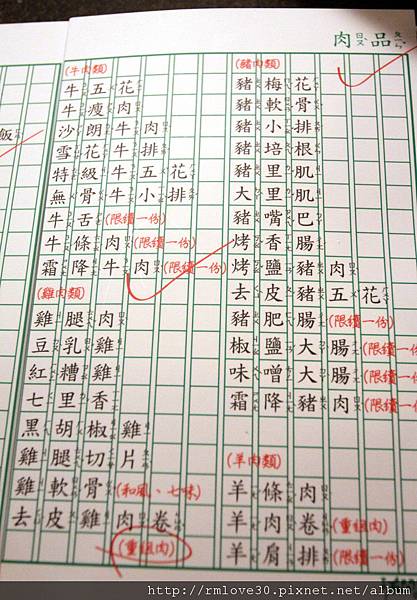 肉品
(牛肉類)
牛五花
牛瘦肉
沙朗牛肉
雪花牛排
特級牛五花
無骨牛小排
牛舌(限續一份)
牛條肉(限續一份)
霜降牛肉(限續一份)
(雞肉類)
雞腿肉
豆乳雞
紅糟雞
七里香
黑胡椒雞
雞腿切片
雞軟骨(和風、七味)
去皮雞肉卷
(重組肉)
(豬肉類)
豬梅花
豬軟骨
豬小排
豬培根
豬里肌
大里肌
豬嘴巴
烤香腸
烤鹽豬肉
去皮豬五花
豬肥腸(限續一份)
椒鹽大腸(限續一份
味噌大腸(限續一份
霜降豬肉(限續一份
(羊肉類)
羊條肉
羊肉卷(重組肉)
羊肩排(限續一份)
飯
http://rmlove30.pixnet.net/album